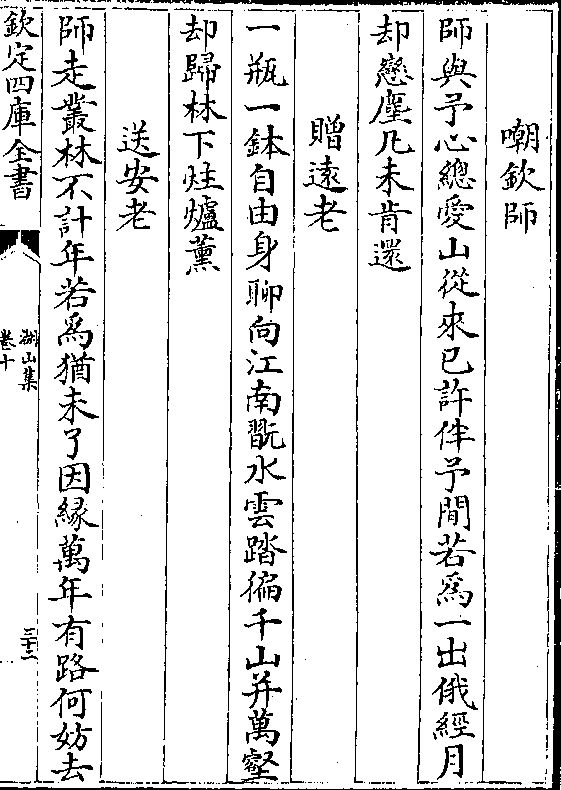 嘲欽師
師與予心總愛山從來已許伴予間若爲一出俄經月
却戀塵凡未肯還
贈逺老
一瓶一鉢自由身聊向江南翫水雲踏徧千山并萬壑
却歸林下炷爐薫
送安老
師走叢林不計年若爲猶未了因縁萬年有路何妨去
欽定四庫全書
湖山集
卷十
三十二